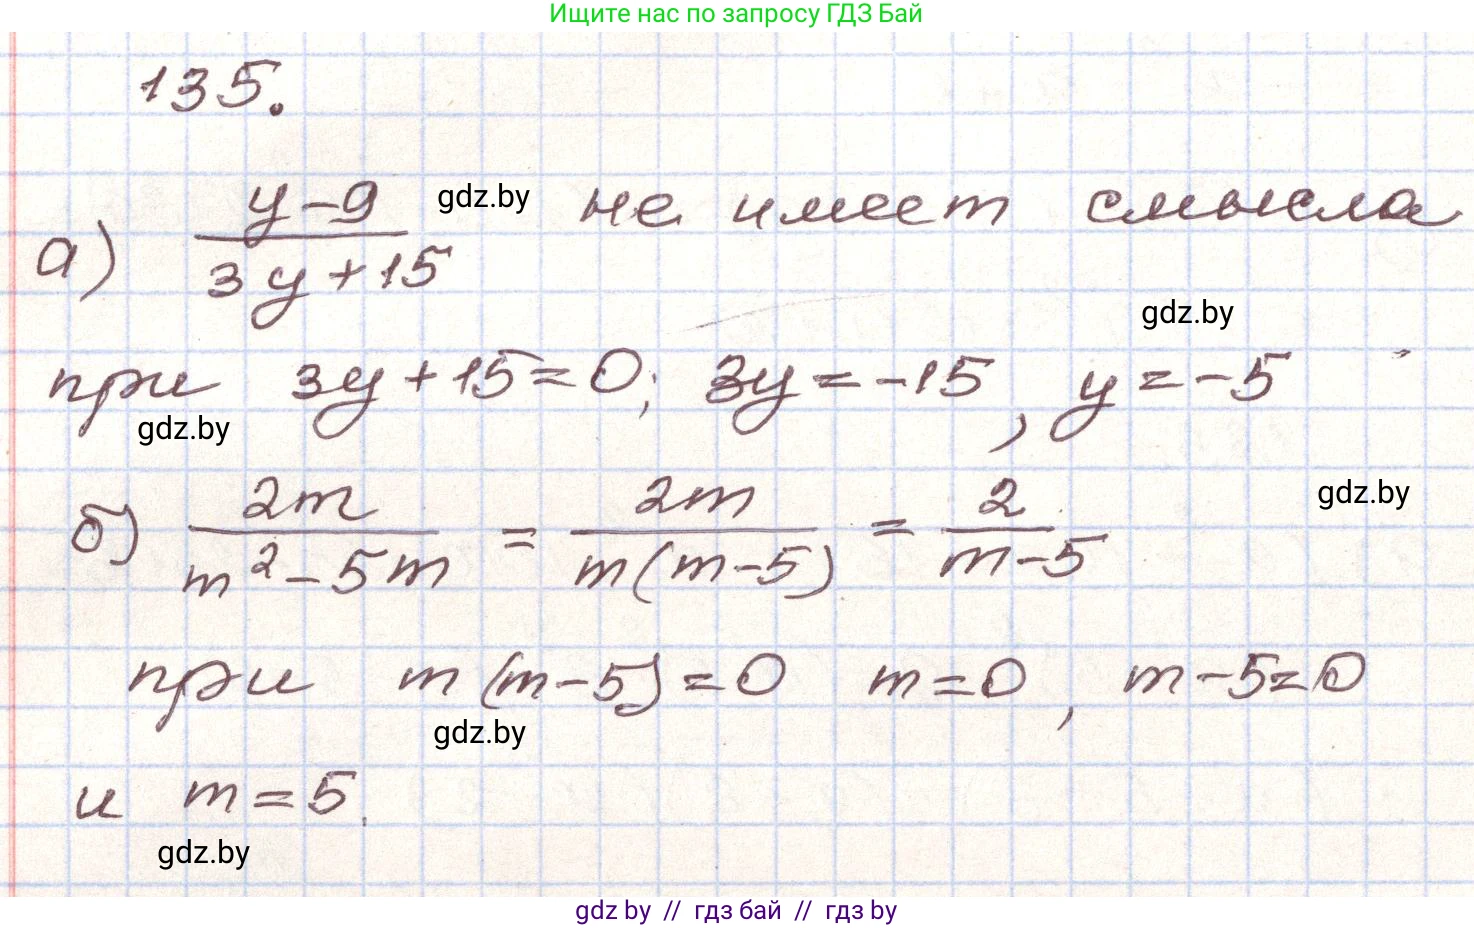 Ищите нас по запросу ГДЗ Бай
135.
а) (y-9)/(3y+15) gdz.by не имеет смысла
gdz.by
при 3y+15=0; 3y=-15, y=-5
gdz.by
gdz.by
б) 2m/(m²-5m) = 2m/(m(m-5)) = 2/(m-5)
при m(m-5)=0 m=0, m-5=0
gdz.by
и m=5.
gdz.by
gdz by // гдз бай // гдз by